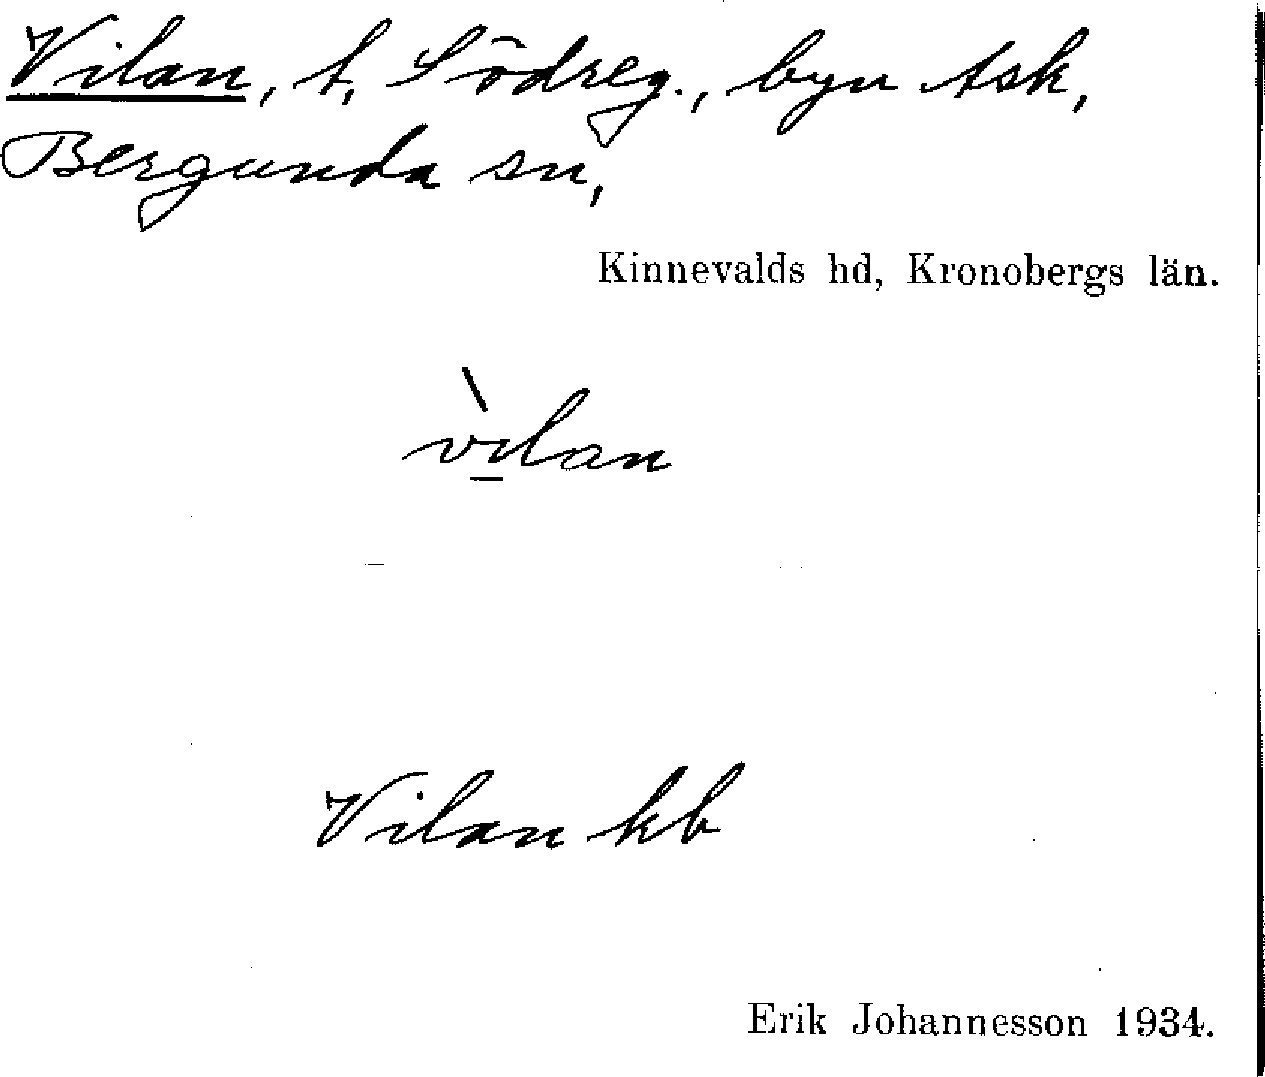 Vilan, t, Södreg., byn Ask,
Bergunda sn,
Kinnevalds hd, Kronobergs län.
vìlan
Vilan kb
Erik Johannesson 1934.